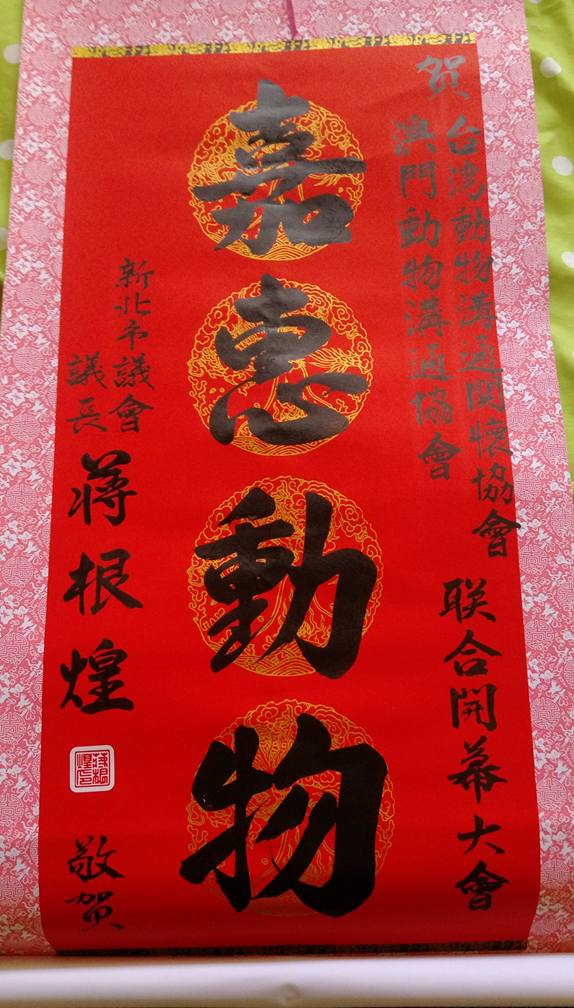 賀
台湾動物溝通関懷協會
澳門動物溝通協會
联合開幕大會
嘉惠動物
新北市議會
議長
蔣根煌
蔣根煌印
敬賀